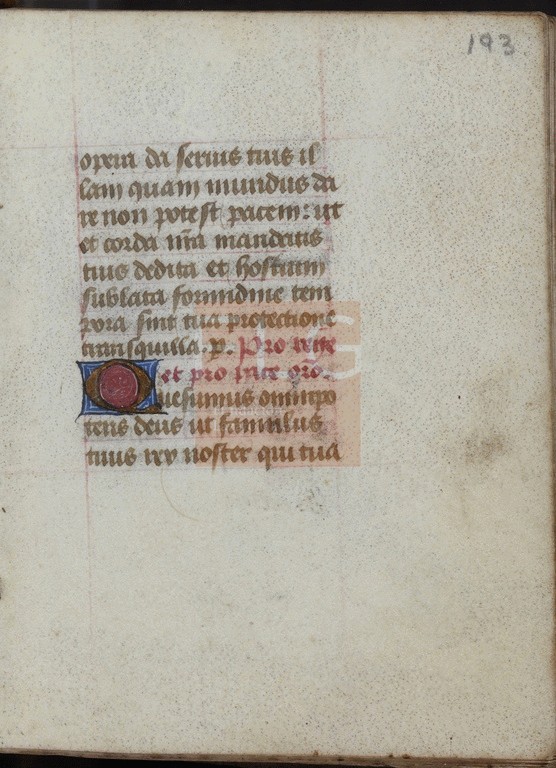 193
opera da servis tuis il
lam quam mundus da
re non potest pacem: ut
et corda nr̄a mandatis
tuis dedita et hostium
sublata formidine tem
pora sint tua protectione
tranquilla. p. Pro rege
et pro pace oro.
Quesumus omnipo
tens deus ut famulus
tuus rex noster qui tua